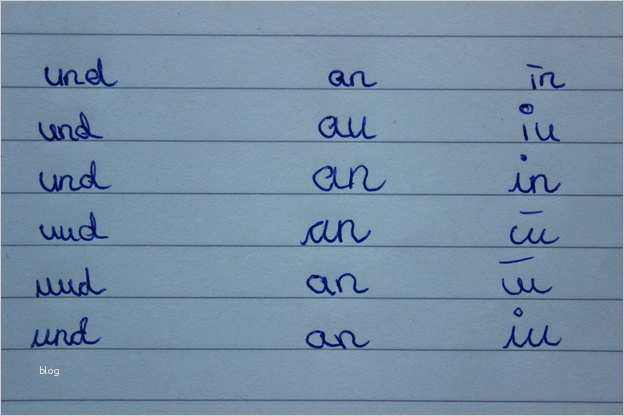 und an in
und au iu
und an in
uud an iu
uud an iu
und an iu
blog